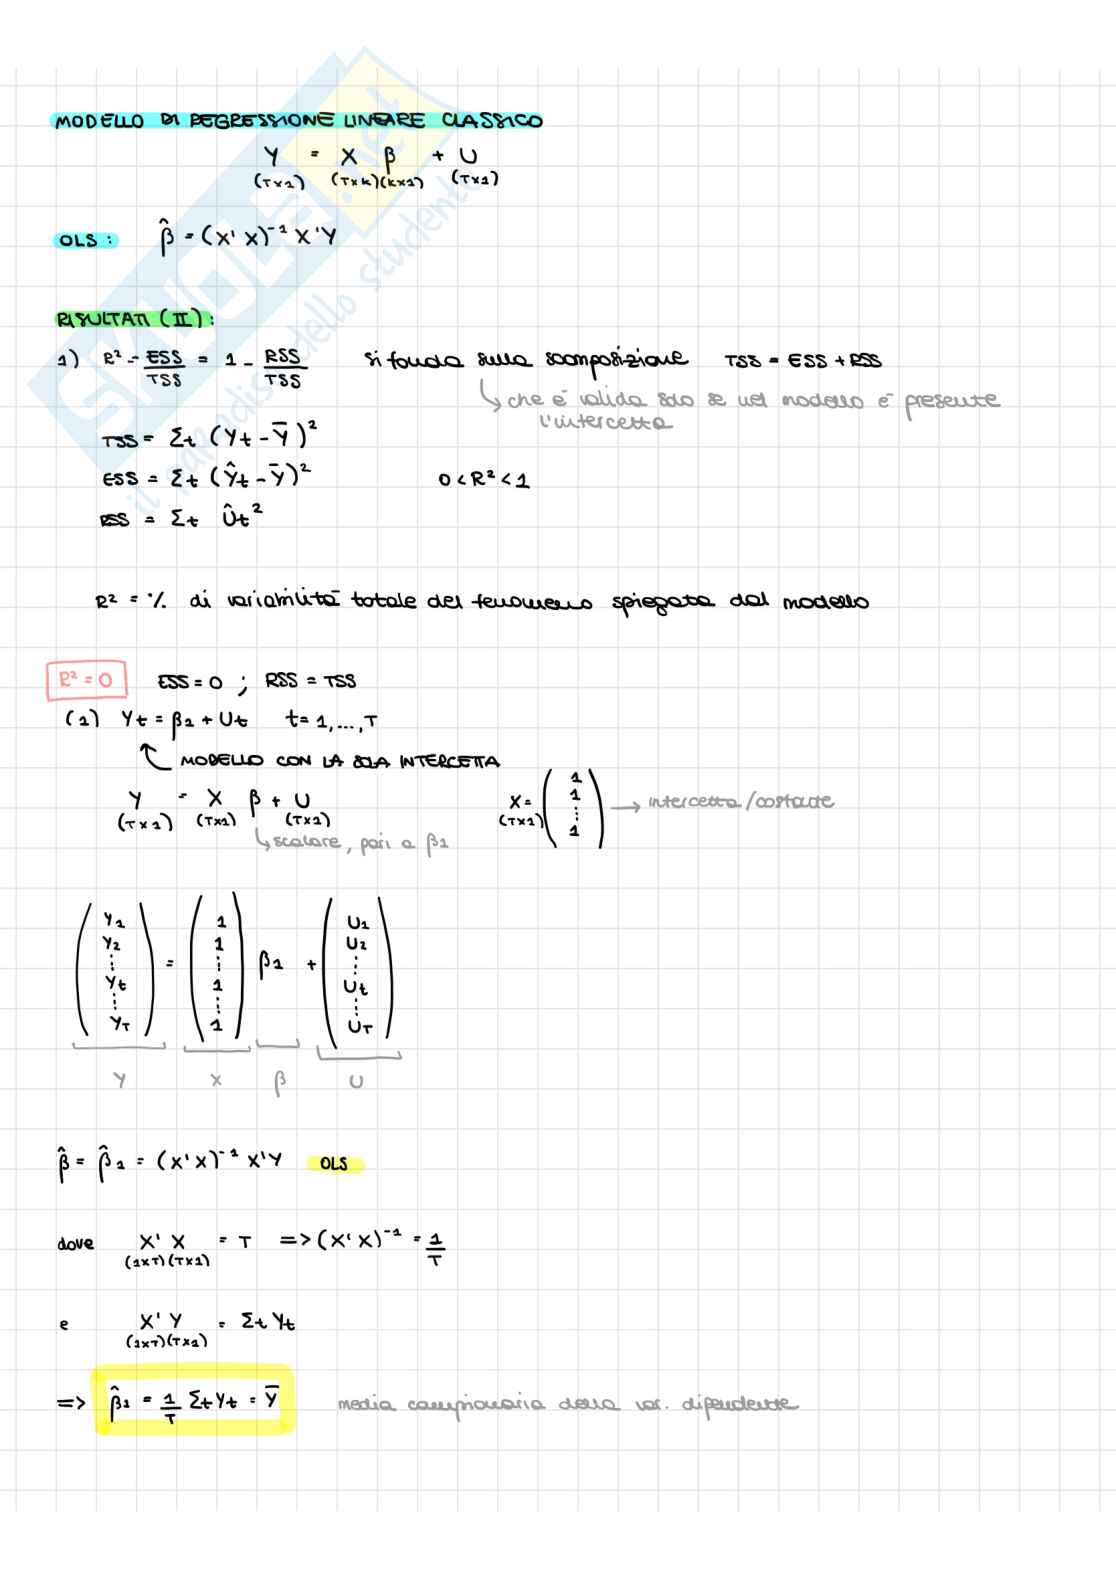 MODELLO DI REGRESSIONE LINEARE CLASSICO
Y = X β + U
(T×1) (T×k)(k×1) (T×1)
OLS : β̂ = (X'X)⁻¹ X'Y
RISULTATI (II):
1) R² = ESS/TSS = 1 - RSS/TSS si fonda sulla scomposizione TSS = ESS + RSS
↳ che è valida solo se nel modello è presente
l'intercetta
TSS = Σt (Yt - Ȳ)²
ESS = Σt (Ŷt - Ȳ)² 0 < R² < 1
RSS = Σt Ût²
R² = % di variabilità totale del fenomeno spiegata dal modello
R² = 0 ESS = 0 ; RSS = TSS
(1) Yt = β1 + Ut t = 1,...,T
MODELLO CON LA SOLA INTERCETTA
Y = X β + U X = (1 1 ⋮ 1) → intercetta/costante
(T×1) (T×1) (T×1) (T×1)
↳ scalare, pari a β1
(Y1 Y2 ⋮ Yt ⋮ YT) = (1 1 ⋮ 1 ⋮ 1) β1 + (U1 U2 ⋮ Ut ⋮ UT)
Y X β U
β̂ = β̂1 = (X'X)⁻¹ X'Y OLS
dove X'X = T => (X'X)⁻¹ = 1/T
(1×T)(T×1)
e X'Y = Σt Yt
(1×T)(T×1)
=> β̂1 = 1/T Σt Yt = Ȳ media campionaria della var. dipendente
SKUOLA.net
il paradiso dello studente